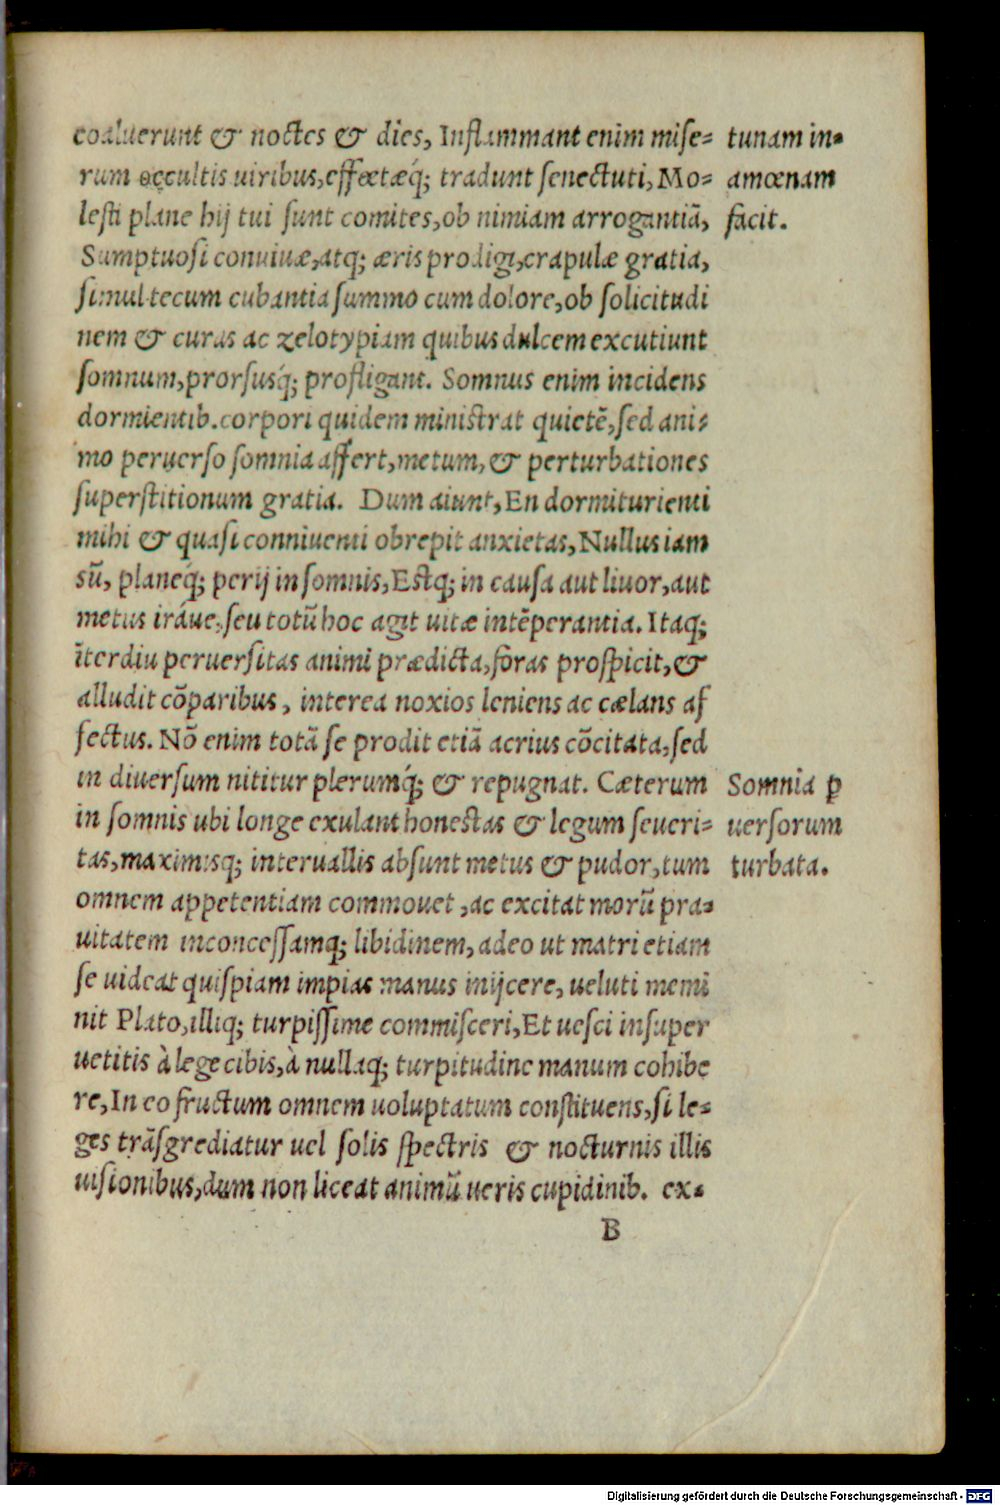 coaluerunt & noctes & dies, Inflammant enim mise-
rum occultis uiribus, effœtæq́; tradunt senectuti, Mo-
lesti plane hij tui sunt comites, ob nimiam arrogantiã,
Sumptuosi conuiuæ, atq; æris prodigi, crapulæ gratia,
simul tecum cubantia summo cum dolore, ob solicitudi
nem & curas ac zelotypiam quibus dulcem excutiunt
somnum, prorsusq́; profligant. Somnus enim incidens
dormientib. corpori quidem ministrat quietẽ, sed ani-
mo peruerso somnia affert, metum, & perturbationes
superstitionum gratia. Dum aiunt, En dormiturienti
mihi & quasi conniuenti obrepit anxietas, Nullus iam
sũ, planeq́; perij in somnis, Estq; in causa aut liuor, aut
metus iráue, seu totũ hoc agit uitæ intẽperantia. Itaq;
ĩterdiu peruersitas animi prædicta, foras prospicit, &
alludit cõparibus, interea noxios leniens ac cælans af
fectus. Nõ enim totã se prodit etiã acrius cõcitata, sed
in diuersum nititur plerumq́; & repugnat. Cæterum
in somnis ubi longe exulant honestas & legum seueri-
tas, maximisq; interuallis absunt metus & pudor, tum
omnem appetentiam commouet, ac excitat morũ pra-
uitatem inconcessamq; libidinem, adeo ut matri etiam
se uideat quispiam impias manus inijcere, ueluti memi
nit Plato, illiq; turpissime commisceri, Et uesci insuper
uetitis à lege cibis, à nullaq; turpitudine manum cohibe
re, In eo fructum omnem uoluptatum constituens, si le-
ges trãsgrediatur uel solis spectris & nocturnis illis
uisionibus, dum non liceat animũ ueris cupidinib. ex-
B
tunam in-
amœnam
facit.
Somnia ꝑ
uersorum
turbata.
Digitalisierung gefördert durch die Deutsche Forschungsgemeinschaft - DFG